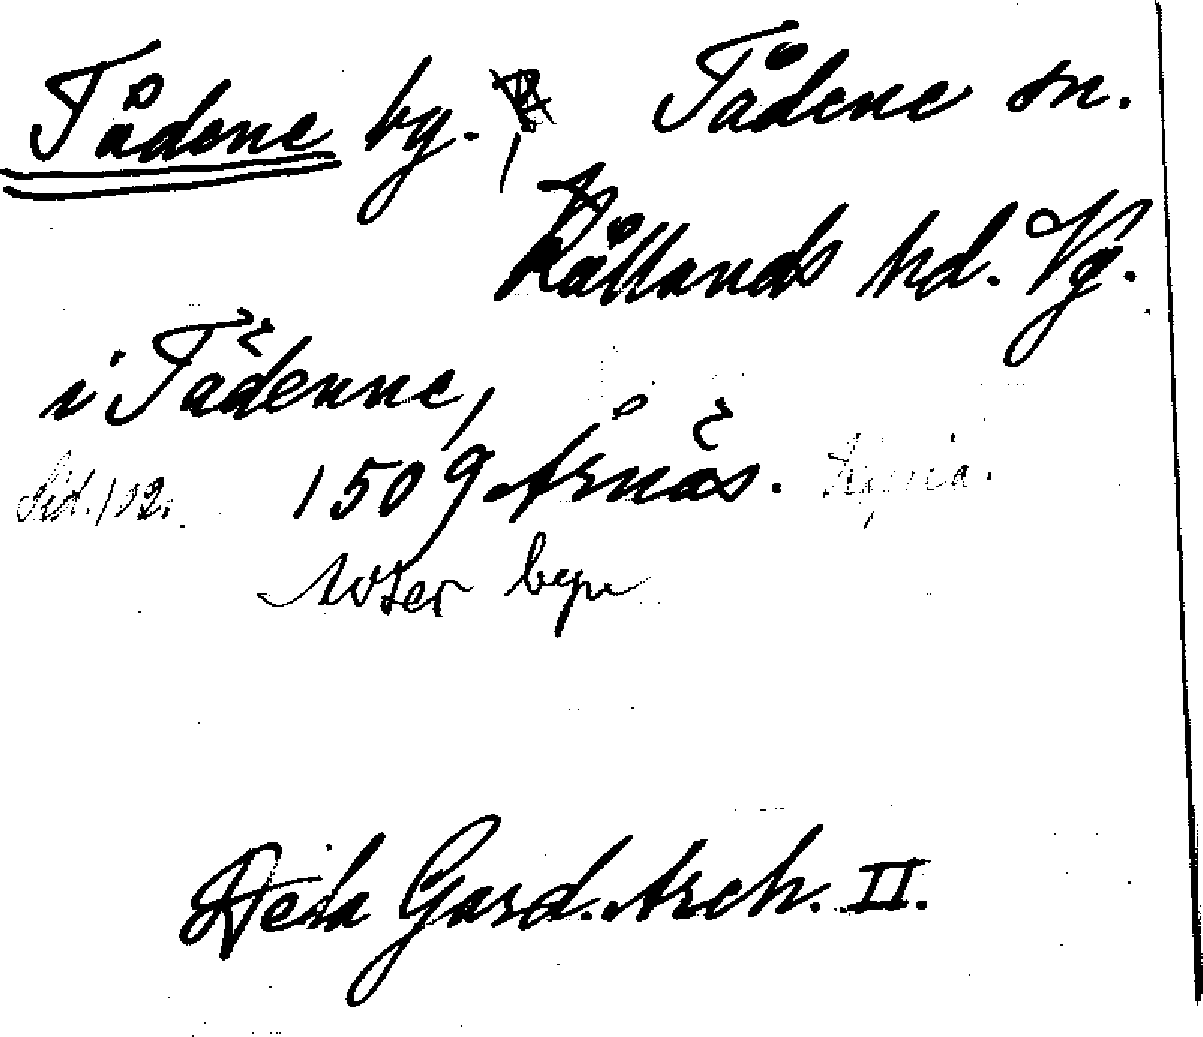 Tådene by. Tådene sn.
Kållands hd. Vg.
i Tådenne,
Sid. 192. 1509 Årnäs. Kopia.
avser byn
Dela Gard. Arch. II.